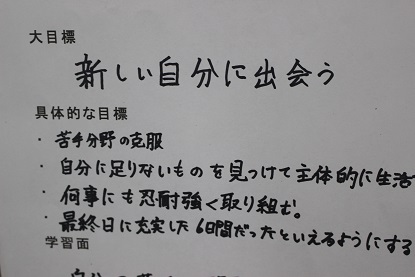 大目標
新しい自分に出会う
具体的な目標
・苦手分野の克服
・自分に足りないものを見つけて主体的に生活
・何事にも忍耐強く取り組む。
・最終日に充実した6日間だったといえるようにする
学習面